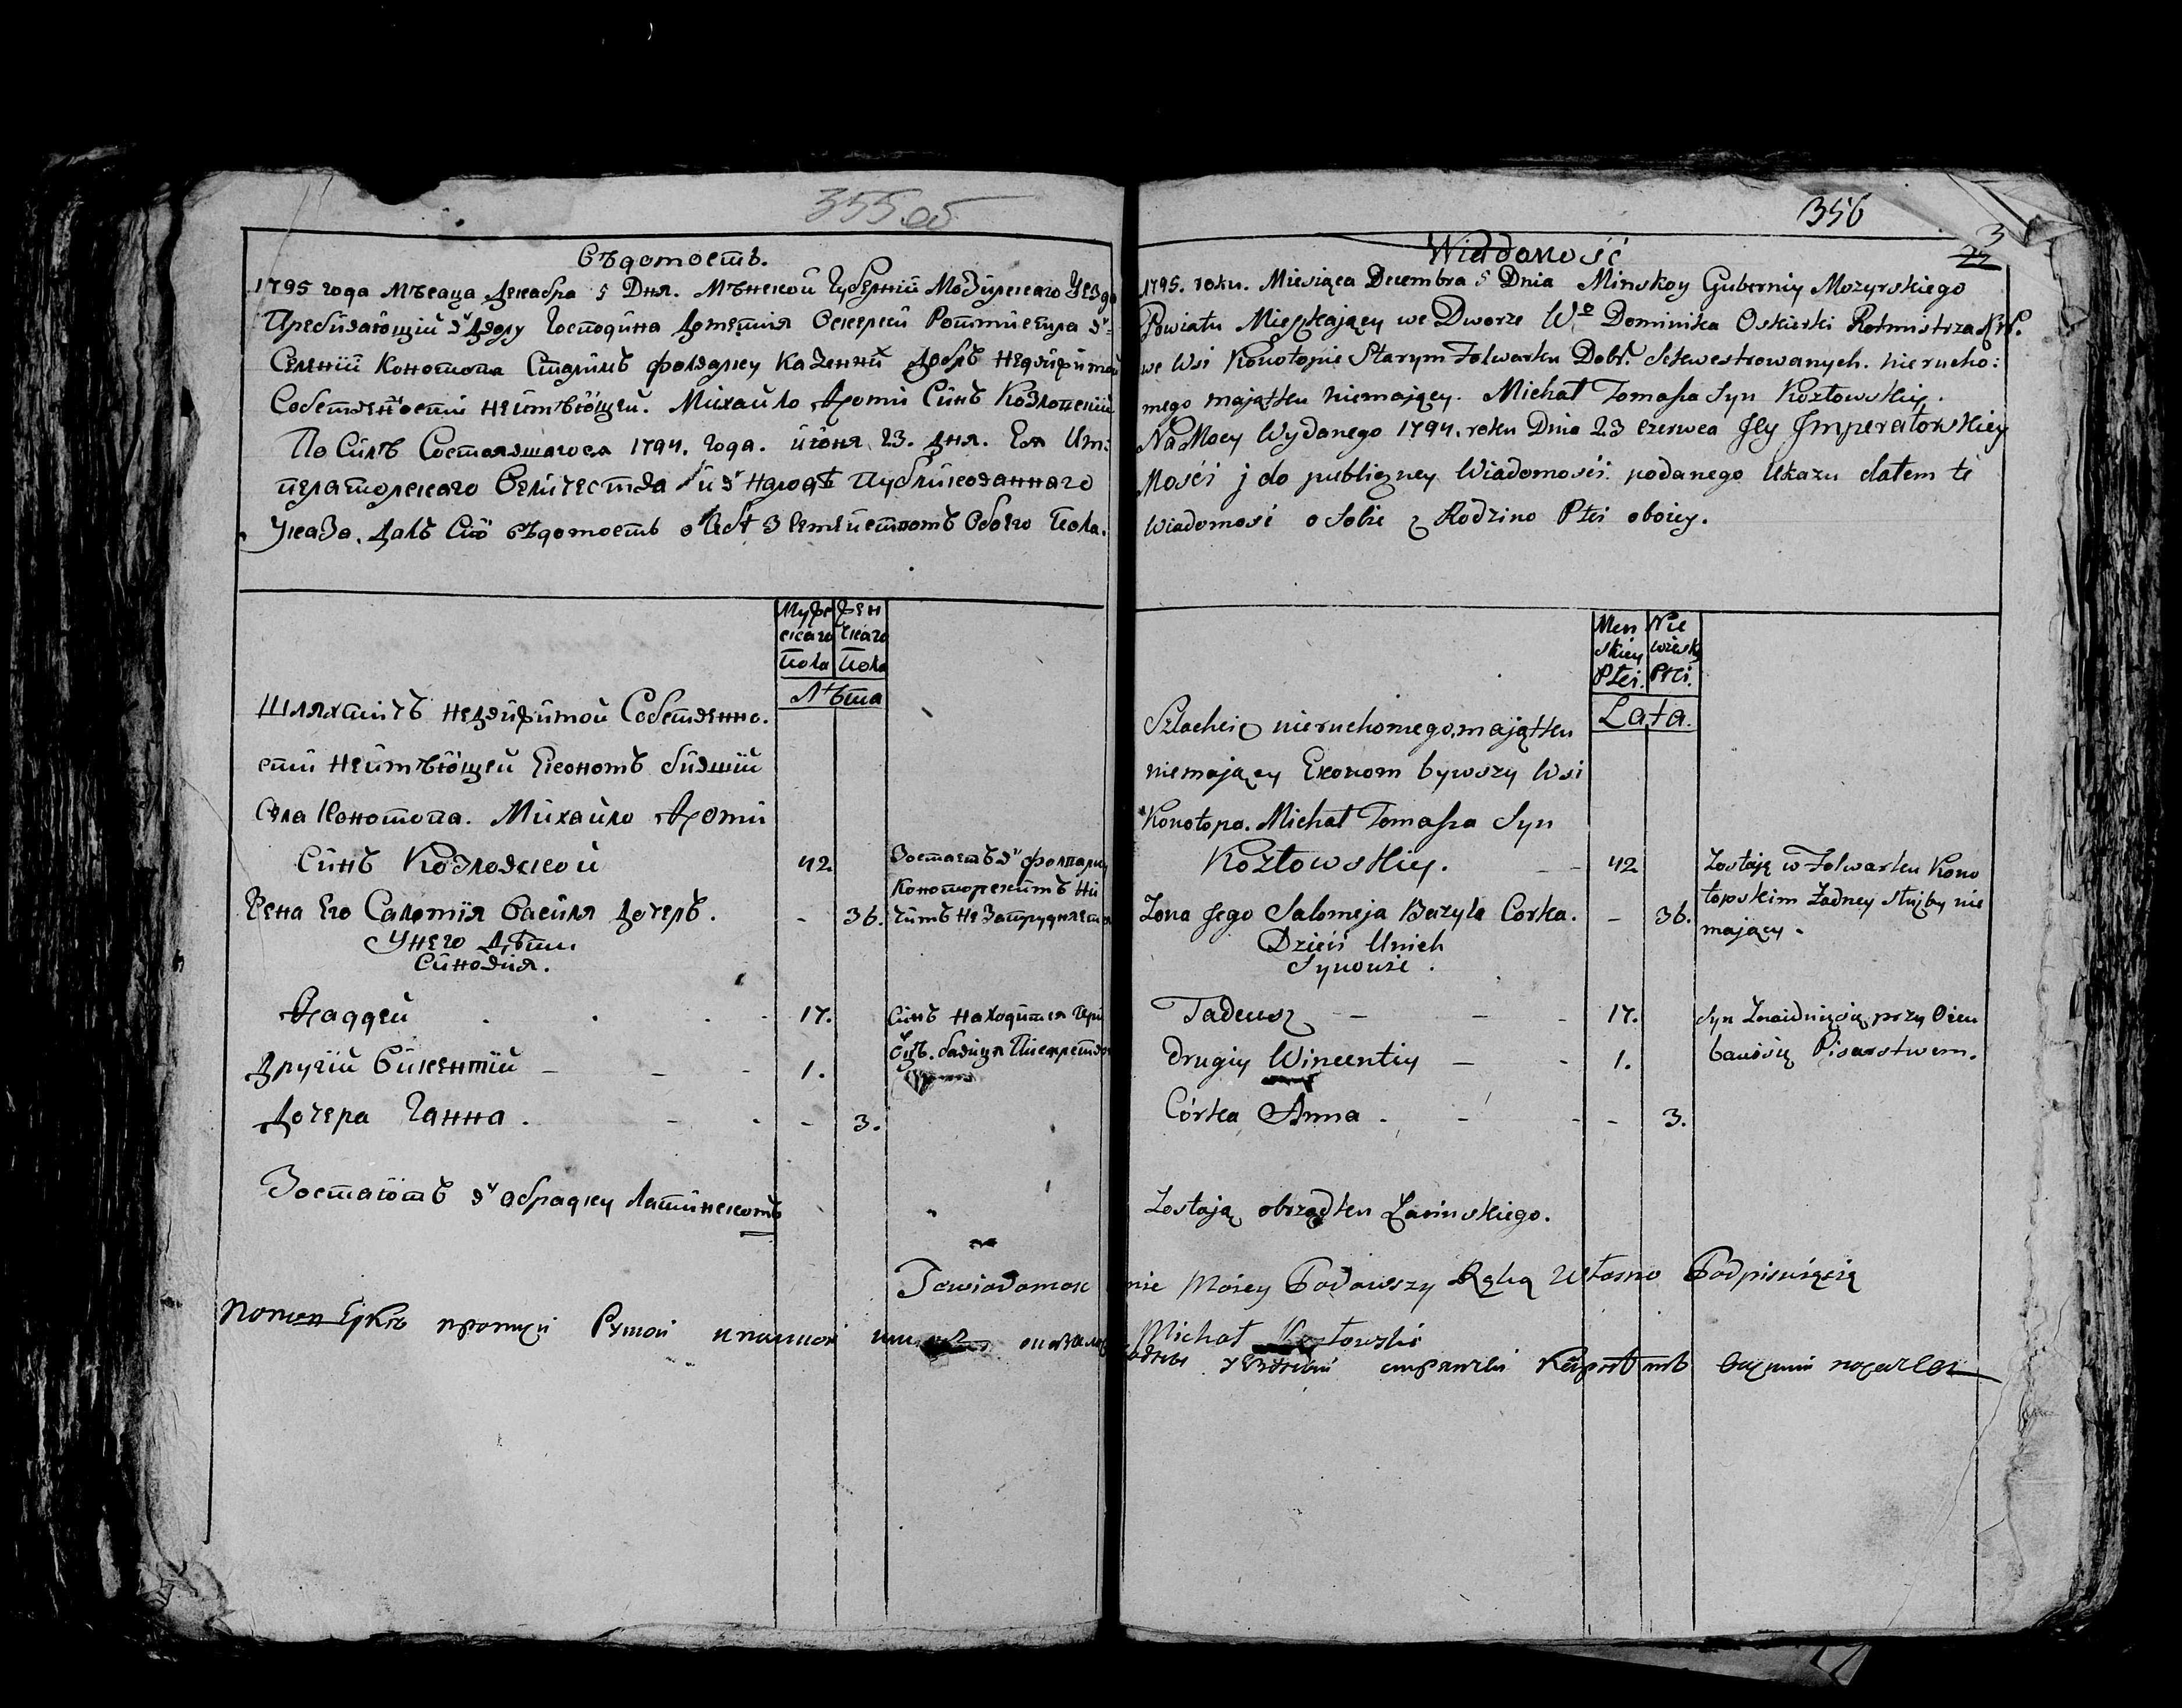 355 об
Вѣдомость.
1795 года Мѣсаца Декабра 5 Дня. Мѣнской Губернїи Мозирскаго Уезда
Пребивающїй в Двору Господина Доменїка Оскерки Ротмистра в
Селенїи Конотопа Старимъ фолварку Казеннй Добръ недвижимой
Собственности неимѣющей. Михайло Ѳоми Синъ Козловский
По Силѣ Состоявшагося 1794. Года. июня 23. дня. Ея Им:
ператорскаго Величества и в народѣ Публикованнаго
Указа. Далъ Сию вѣдомость о себѣ З Семействомъ Обоего Пола.
Мужескаго Пола
Женскаго Пола
Лѣта
Шляхтичъ недвижимой Собственно.
сти неимѣющей Економъ бившїй
Села Конотопа. Михайло Ѳоми
Синъ Козловской 42
Зостаетъ в фолварку
Конотопскимъ Ни
Чимъ не Запрудняется
Жена Его Саломїя Василя Дочеръ. - 36.
Унего Дѣти.
Синовия.
Ѳаддей 17.
Синъ находится При
Оцѣ. бавица Писарством
Другїй Викентїй - 1.
Дочера Ганна. - 3.
Зостаютъ в обрадку Латинскомъ
356
3
22
Wiadomość
1795. roku. Miesiąca Decembra 5 Dnia Minskoy Guberniy Mozyrskiego
Powiatu Mieszkaiący we Dworze Wo Dominika Oskierki Rotmistrza
we Wsi Konotopie Starym Folwarku Dobr. Sekwestrowanych. nierucho:
mego maiątku niemaiący. Michał Tomasza Syn Kozłowskiy.
Na Mocy Wydanego 1794. roku Dnia 23 Czerwca Jey Imperatorskiey
Mości j do publiczney Wiadomości podanego Ukazu dałem tę
Wiadomość o Sobie z Rodzino Płci oboiey.
Menskiey Płci.
Niewieskiey Płci.
Lata.
Szlachcic nieruchomego, maiątku
niemaiący Ekonom bywszy Wsi
Konotopa. Michał Tomasza Syn
Kozłowskiy. - - 42
Zostaję w Folwarku Kono
topskim Żadney służby nie
maiący.
Zona Jego Salomeja Bazyla Corka. - 36.
Dzieci Unich
Synowie.
Tadeusz - - - 17.
Syn Znaiduięsię przy Oicu
bawisię Pisarstwem.
drugiy Wincentiy - - 1.
Córka Anna. - - - 3.
Zostają obrządku Łacinskiego.
mnie Mości Podawszy Ręką własno Podpisuiąsię
Michał Kozłowski